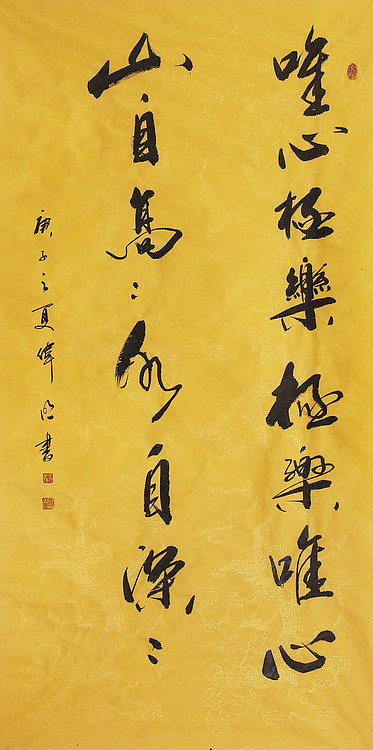 唯心極樂極樂唯心
山自高〻水自深〻
庚子之夏偉明書